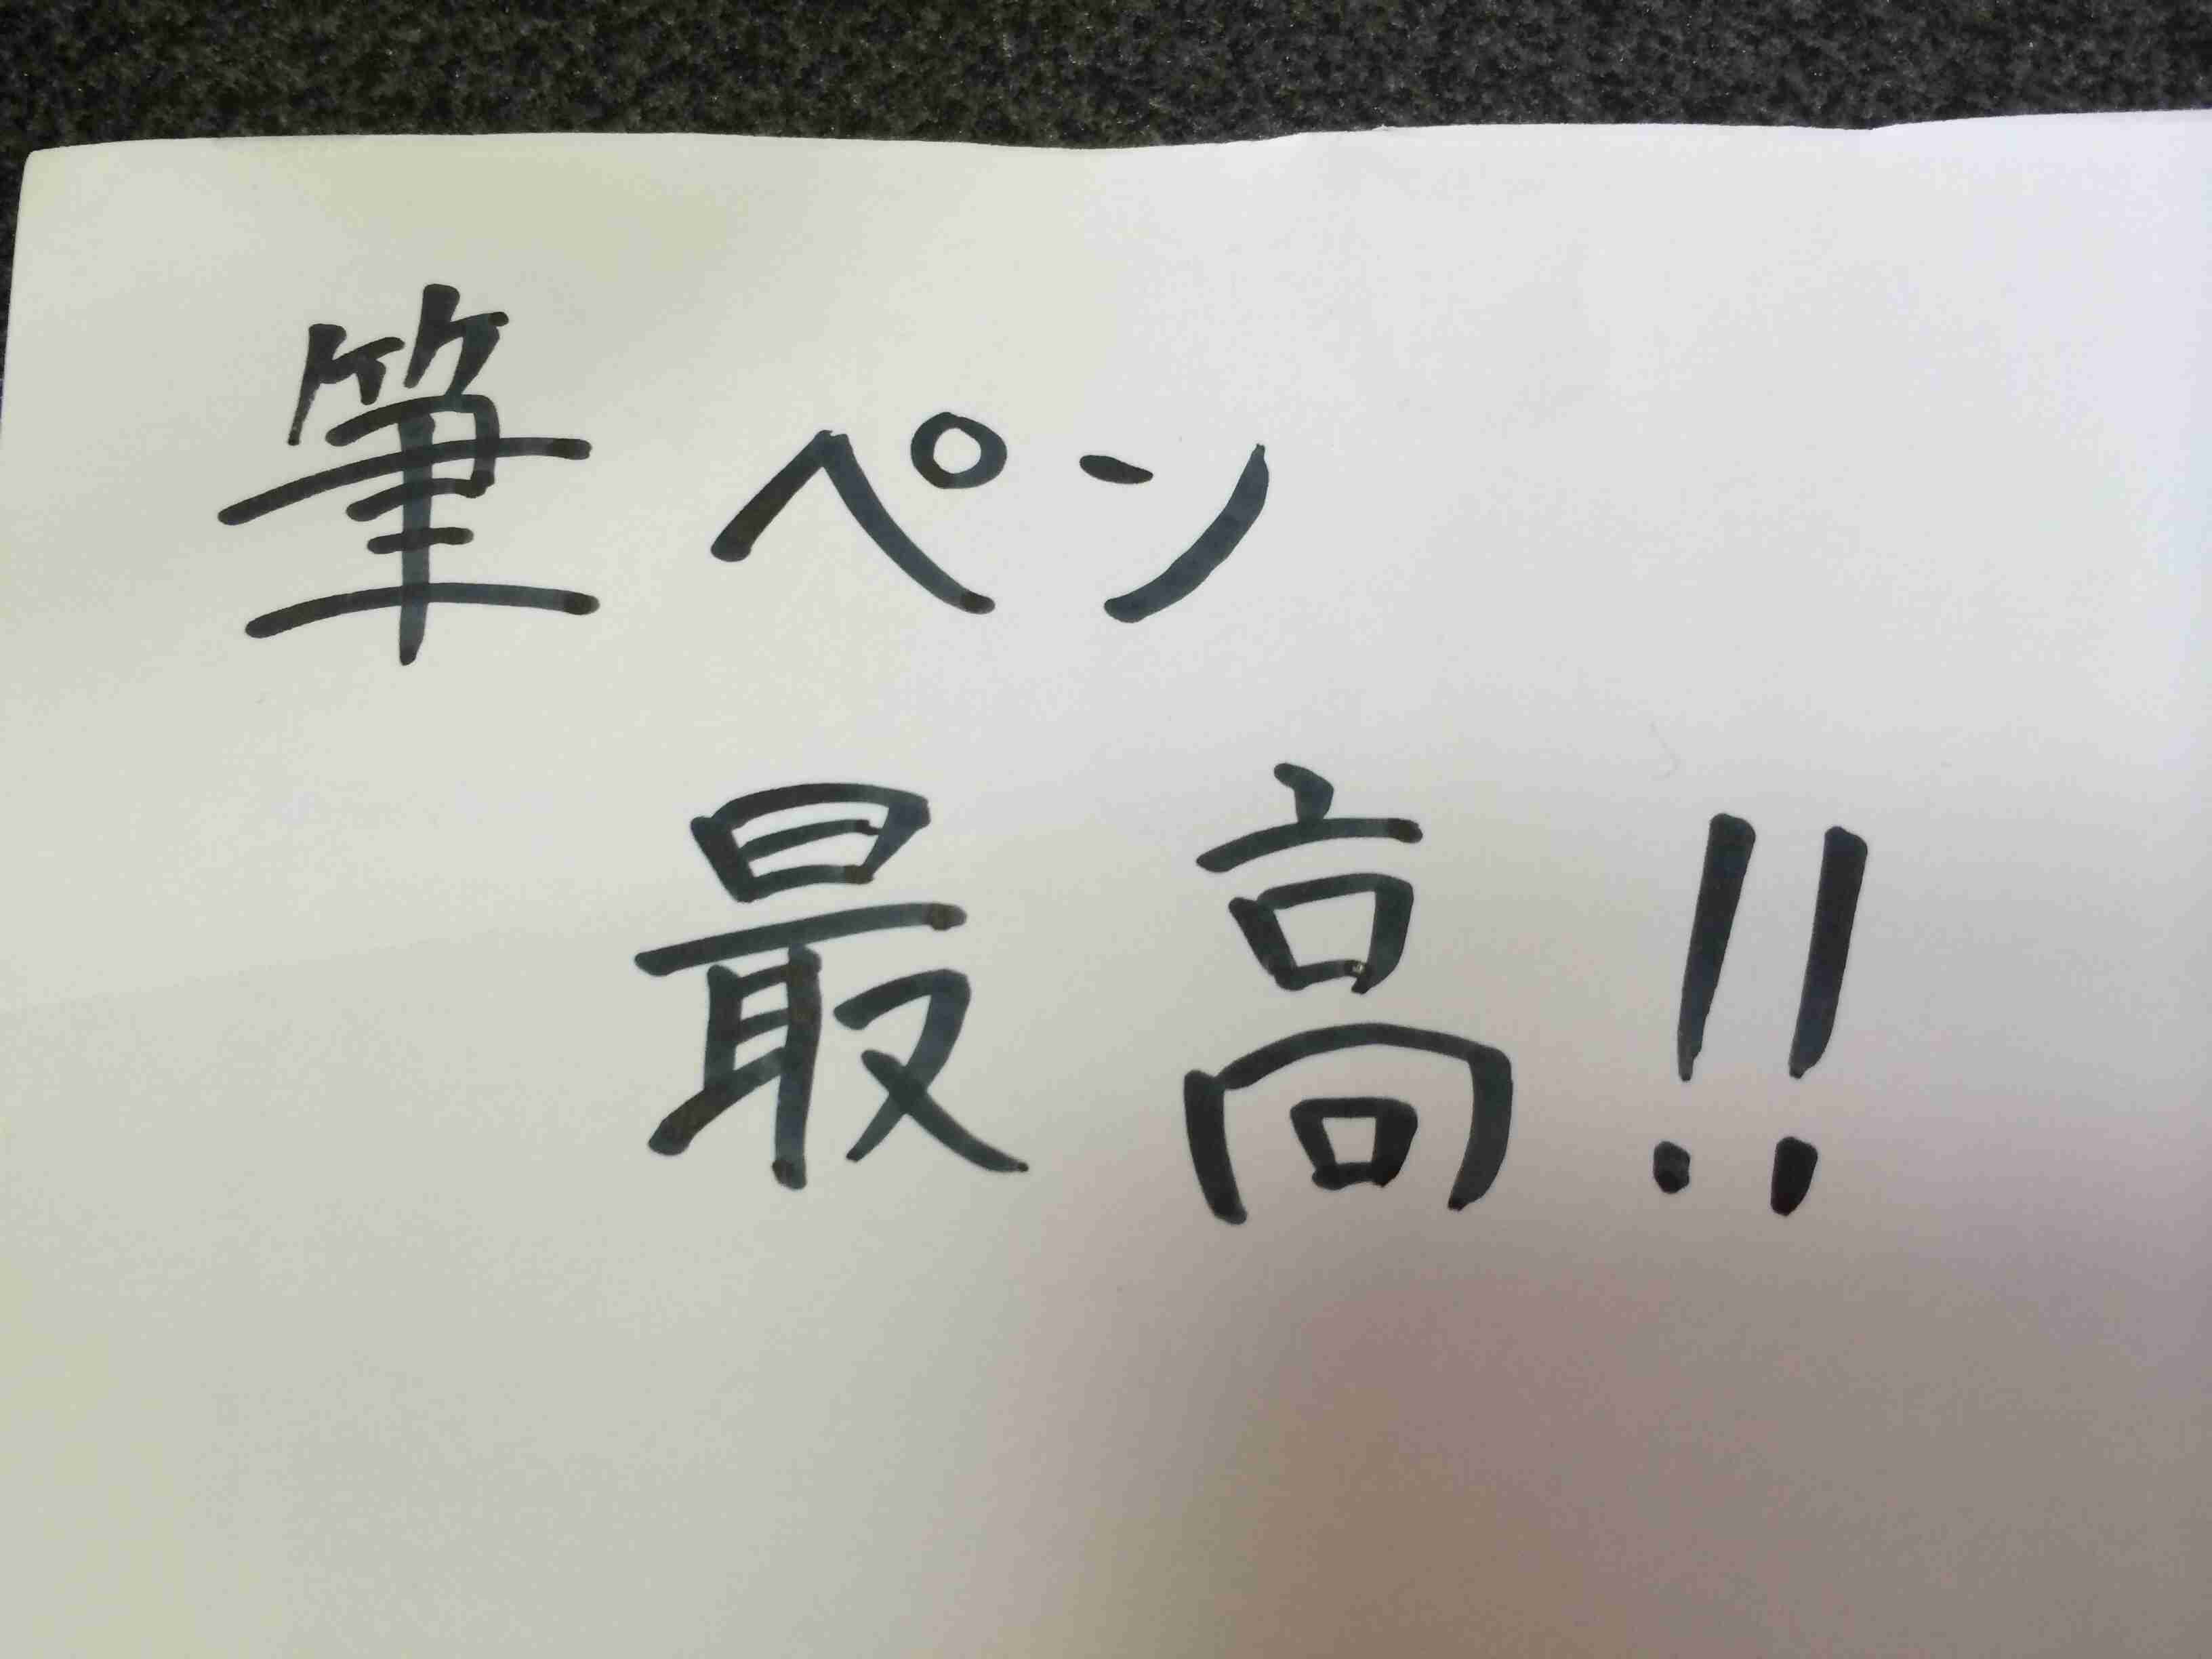 筆ペン
最高!!